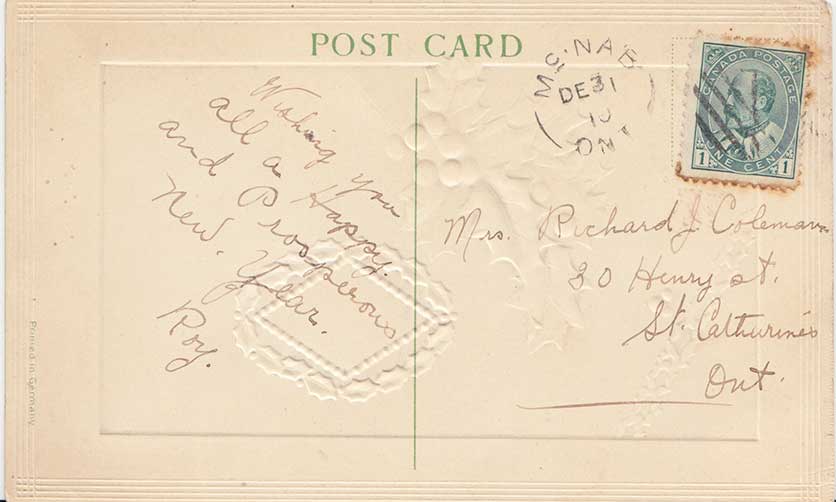 POST CARD
Wishing you
all a Happy
and Prosperous
New Year.
Roy.
McNAB
DE 31
10
ONT
CANADA POSTAGE
1 ONE CENT 1
Mrs. Richard J. Coleman
30 Henry st.
St. Cathurines
Ont.
Printed in Germany